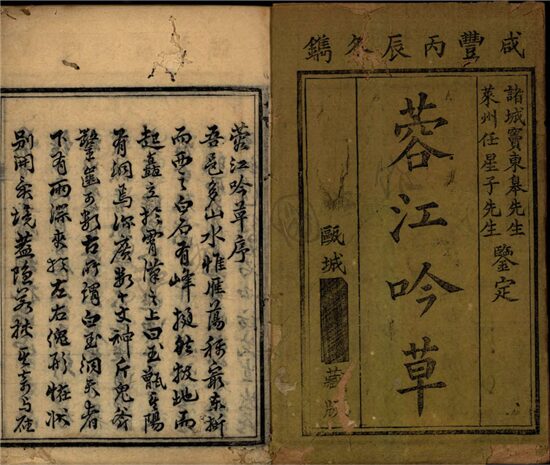 咸豐丙辰冬鐫
諸城竇東皋先生
萊州任星子先生
鑒定
蓉江吟草
甌城
藏版
蓉江吟草序
吾邑多山水惟雁蕩稱最東折
而西之白石有峰拔地而
起矗立於霄漢之上曰玉甑其陽
有洞焉深廣數十丈神斤鬼斧
鑿可數古所謂白玉洞天者
下有兩潭夾於左右傀形怪狀
別開境蓋隱若